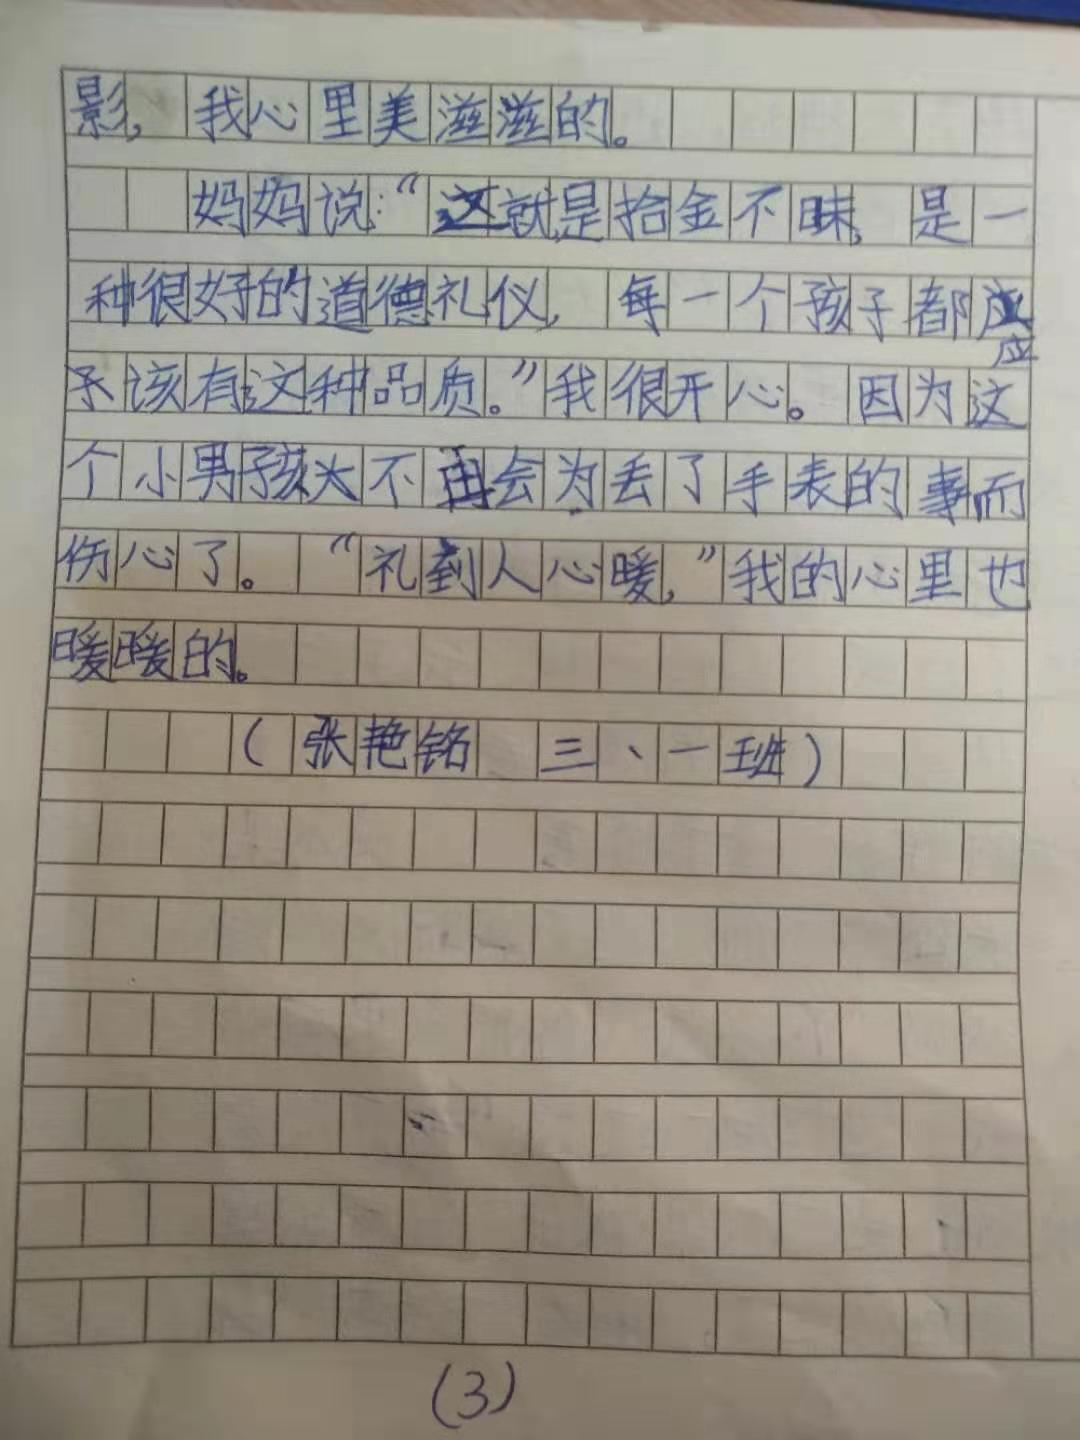 影,我心里美滋滋的。
妈妈说:“这就是拾金不昧,是一
种很好的道德礼仪,每一个孩子都
应
该有这种品质。”我很开心。因为这
个小男孩 不再会为丢了手表的事而
伤心了。“礼到人心暖,”我的心里也
暖暖的。
(张艳铭 三、一班)
(3)